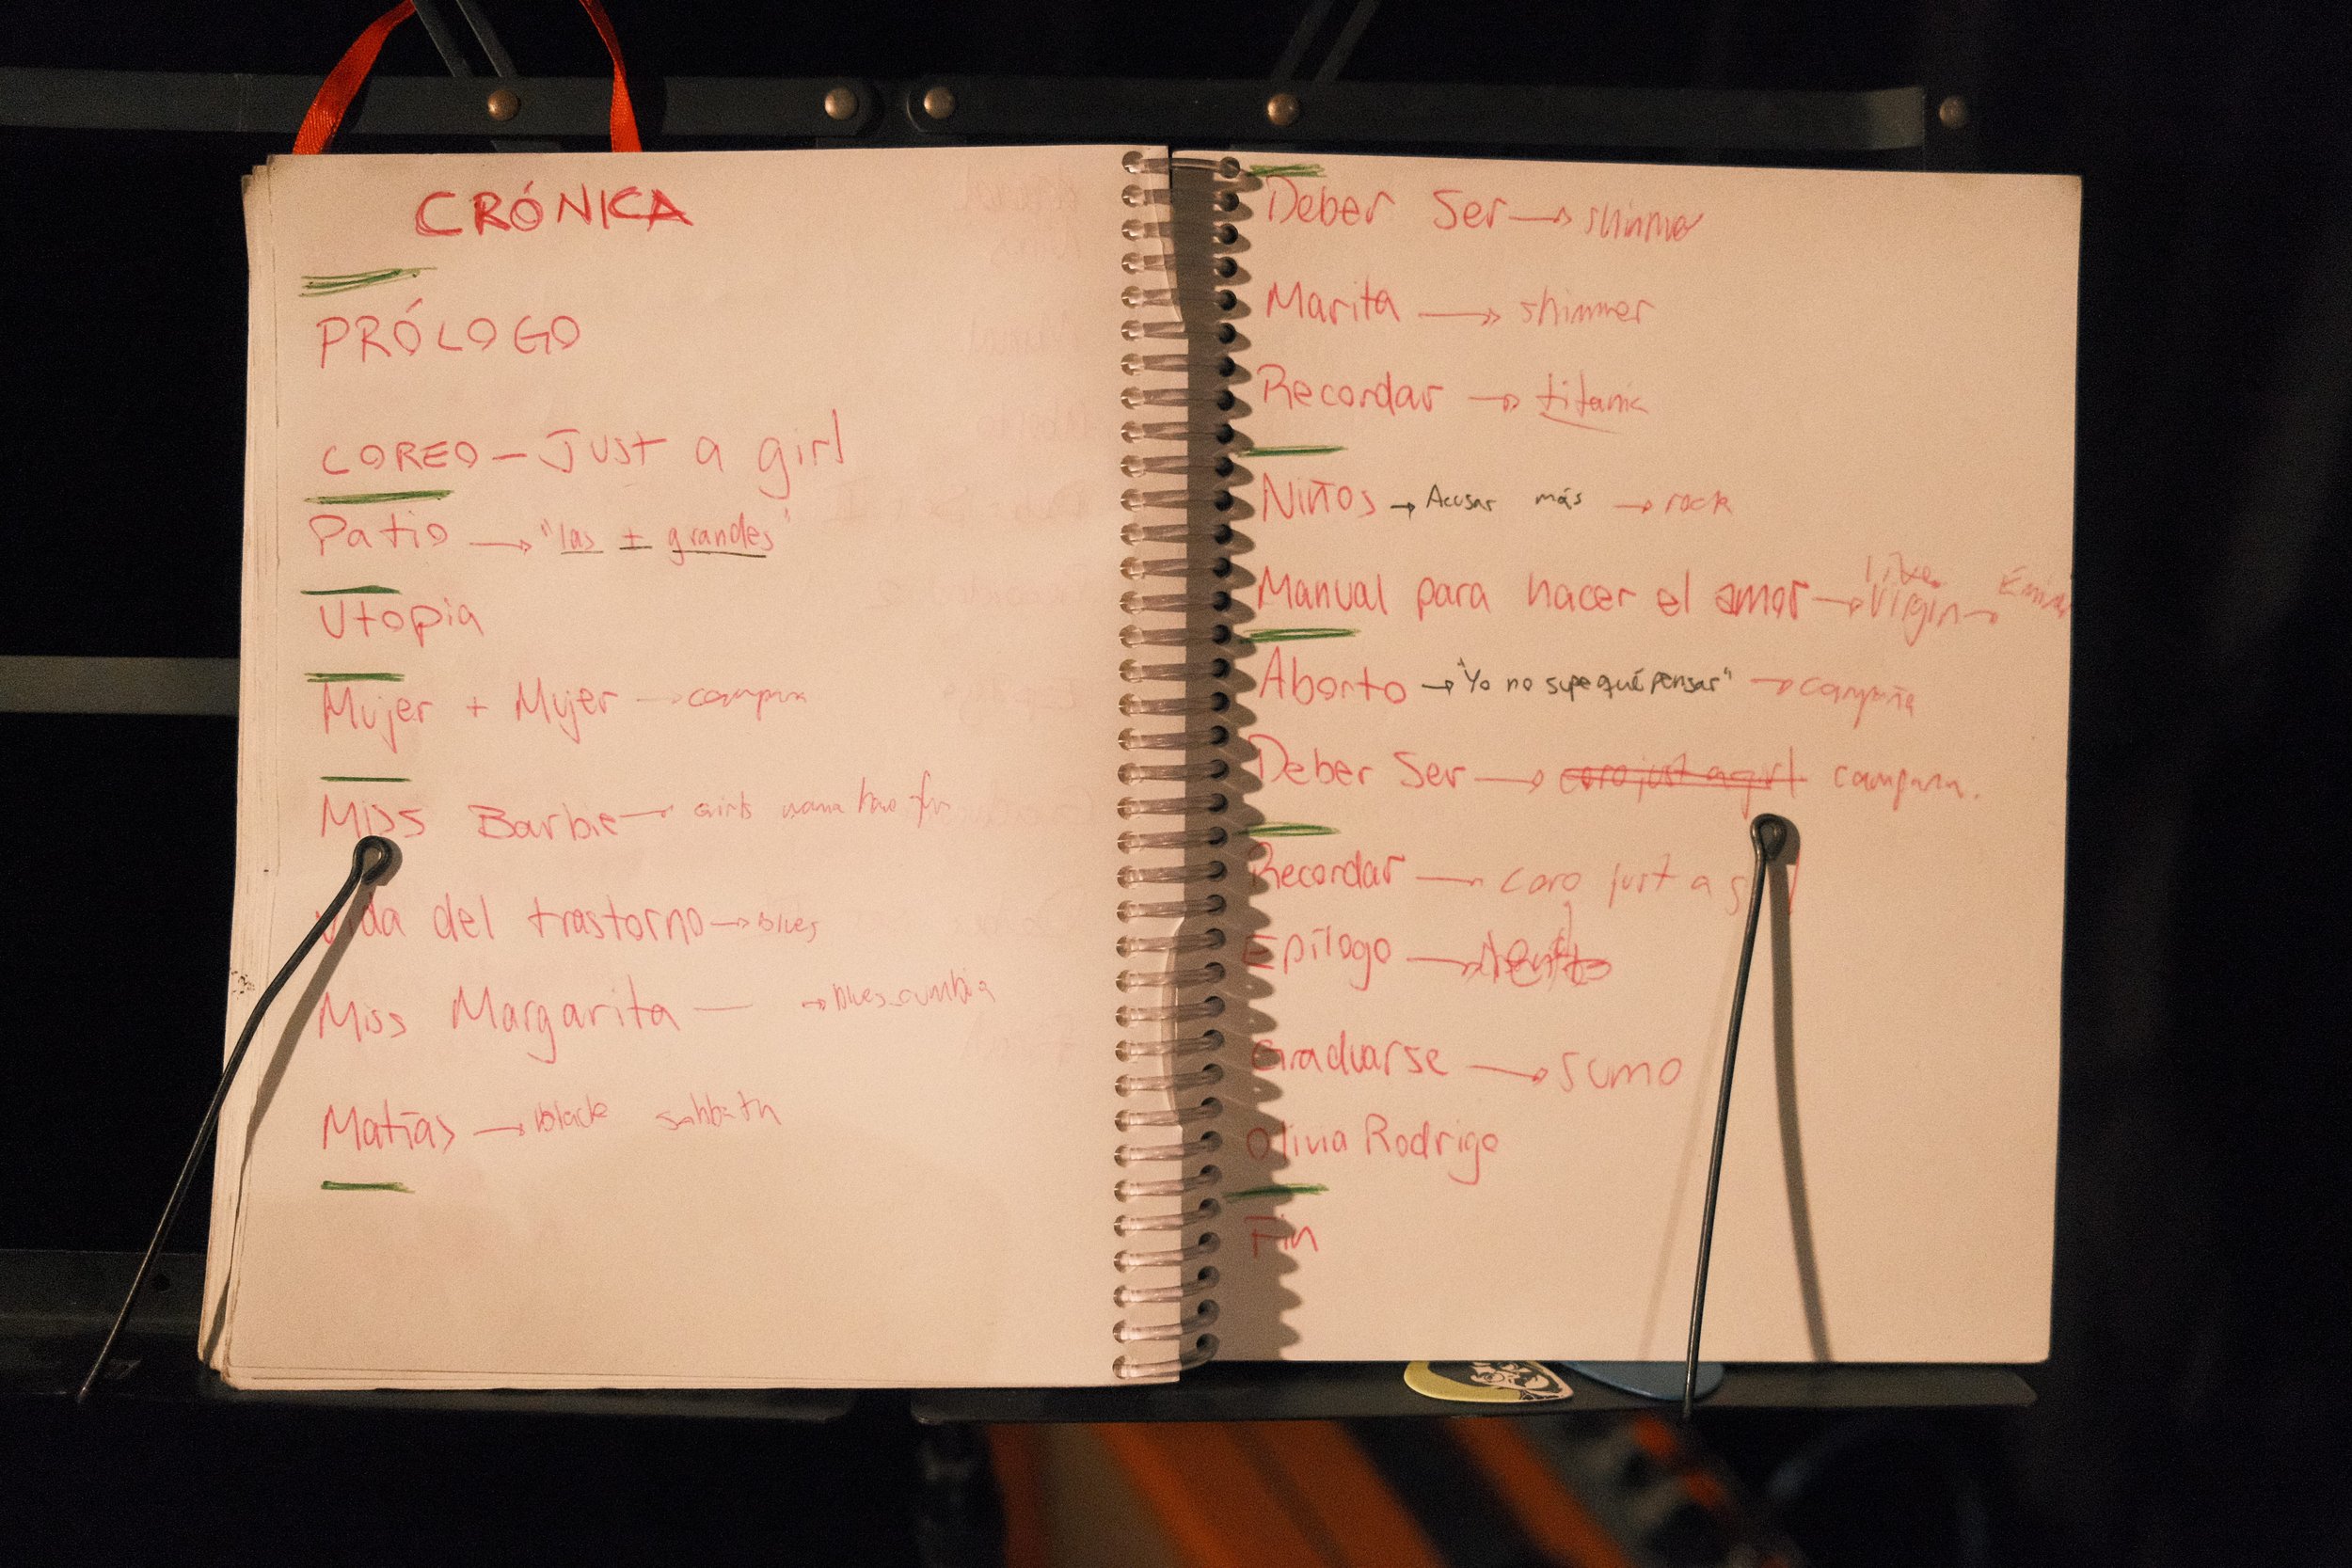 CRÓNICA
PRÓLOGO
COREO - Just a girl
Patio → "las ± grandes"
Utopia
Mujer + Mujer → campana
Miss Barbie → Girls wanna have fun
Vida del trastorno → blues
Miss Margarita — → blues cumbia
Matías → black sabbath
Deber Ser → shimmer
Marita → shimmer
Recordar → titanic
Niños → Acusar más → rock
Manual para hacer el amor → like Virgin →
Aborto → "Yo no supe qué pensar" → campana
Deber Ser → coro just a girl campana.
Recordar → coro just a girl
Epílogo →
Graduarse → SUMO
Olivia Rodrigo
Fin